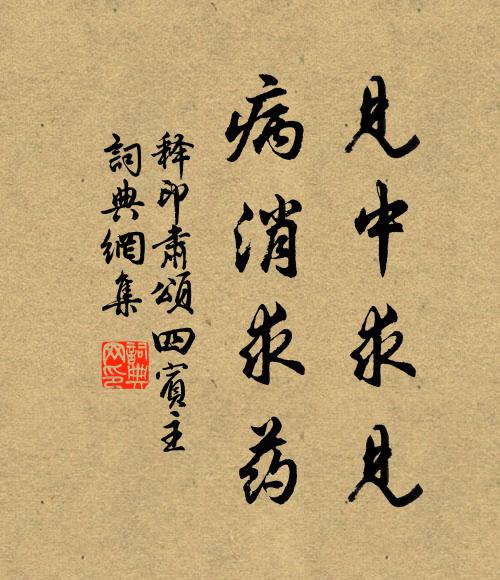 見中求見
病消求药
释印肅頌四賓主
詞典網集
詞典网印